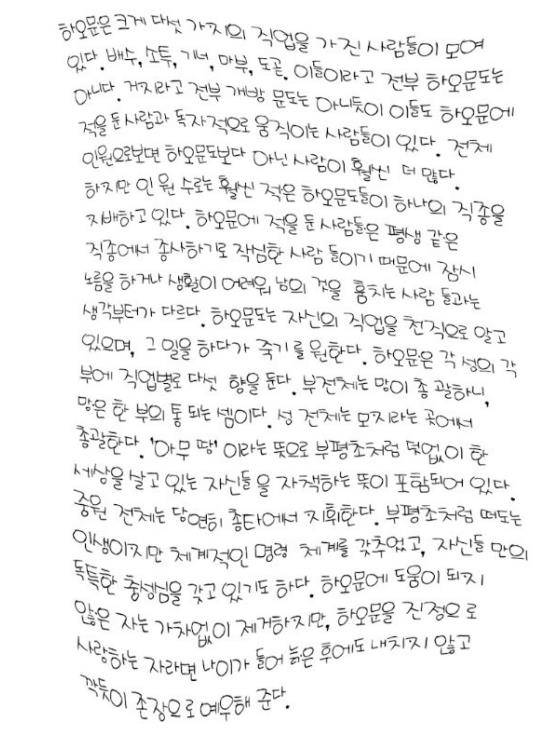 하오문은 크게 다섯 가지의 직업을 가진 사람들이 모여
있다. 배수, 소투, 기녀, 마부, 도곤. 이들이라고 전부 하오문도는
아니다. 거지라고 전부 개방 문도는 아니듯이 이들도 하오문에
적을 둔 사람과 독자적으로 움직이는 사람들이 있다. 전체
인원으로보면 하오문도보다 아닌 사람이 훨씬 더 많다.
하지만 인 원 수로는 훨씬 적은 하오문도들이 하나의 직종을
지배하고 있다. 하오문에 적을 둔 사람들은 평생 같은
직종에서 종사하기로 작심한 사람 들이기 때문에 잠시
노름을 하거나 생활이 어려워 남의 것을 훔치는 사람 들과는
생각부터가 다르다. 하오문도는 자신의 직업을 천직으로 알고
있으며, 그 일을 하다가 죽기를 원한다. 하오문은 각 성의 각
부에 직업별로 다섯 향을 둔다. 부전체는 망이 총 괄하니,
망은 한 부의 통 되는 셈이다. 성 전체는 모지라는 곳에서
총괄한다. '아무 땅' 이라는 뜻으로 부평초처럼 덧없이 한
세상을 살고 있는 자신들을 자책하는 뜻이 포함되어 있다.
중원 전체는 당연히 총타에서 지휘한다. 부평초처럼 떠도는
인생이지만 체계적인 명령 체계를 갖추었고, 자신들 만의
독특한 충성심을 갖고 있기도 하다. 하오문에 도움이 되지
않은 자는 가차없이 제거하지만, 하오문을 진정으 로
사랑하는 자라면 나이가 들어 늙은 후에도 내치지 않고
깍듯이 존장으로 예우해 준다.